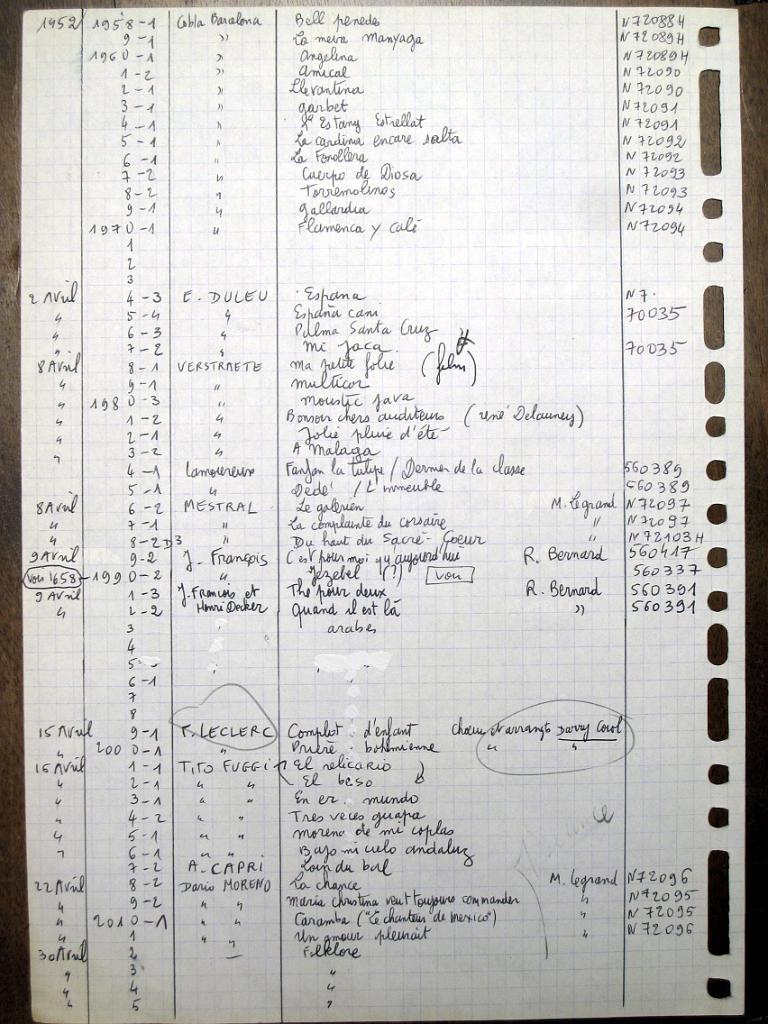 1952 195 8-1 Cobla Barcelona Bell penedes N72088H
9-1 " La meva manyaga N72089H
196 0-1 " Angelina N72089H
1-2 " Amical N72090
2-1 " Llevantina N72090
3-1 " garbet N72091
4-1 " L'Estany Estrellat N72091
5-1 " La cardina encare salta N72092
6-1 " La Fonollera N72092
7-2 " Cuerpo de Diosa N72093
8-2 " Torremolinos N72093
9-1 " gallardia N72094
197 0-1 " Flamenca y calé N72094
1
2
3
2 Avril 4-3 E. DULEU España N7.
" 5-4 " España cani 70035
" 6-3 " Palma Santa Cruz
" 7-2 " mi jaca 70035
8 Avril 8-1 VERSTRAETE ma petite folie (film)
" 9-1 " multicor
" 198 0-3 " moustic java
" 1-2 " Bonsoir chers auditeurs (rené Delauney)
" 2-1 " Jolie pluie d'été
" 3-2 " A Malaga
4-1 Lamoureux Fanfan la tulipe / Dernier de la classe 560389
5-1 " Dédé / L'immeuble 560389
8 Avril 6-2 MESTRAL Le galérien M. Legrand N72097
" 7-1 " La complainte du corsaire " N72097
" 8-2 D3 " Du haut du Sacré-Coeur " N72103H
9 Avril 9-2 J. François C'est pour moi qu'aujourd'hui R. Bernard 560417
voir 1658 199 0-2 " Jezebel (?) voir 560337
9 Avril 1-3 J. François et Henri Decker Thé pour deux R. Bernard 560391
" 2-2 Quand il est là " 560391
3 arabes
4
5 "
6-1
7
8
15 Avril 9-1 T. LECLERC Complot d'enfant choeur et arrangts Darry Cowl
" 200 0-1 " Prière bohémienne " "
16 Avril 1-1 TITO FUGGI El relicario
" 2-1 " " El beso
" 3-1 " " En er mundo
" 4-2 " " Tres veces guapa
" 5-1 " " morena de mi coplas
" 6-1 " " Bajo mi cielo andaluz
7-2 A. CAPRI Loin du bal
22 Avril 8-2 Dario MORENO La chance M. Legrand N72096
" 9-2 " " Maria christina veut toujours commander " N72095
" 201 0-1 " " Caramba ("Le chanteur de mexico") " N72095
" 1 " " Un amour pleurait " N72096
30 Avril 2 — Folklore
" 3 "
" 4 "
" 5 "